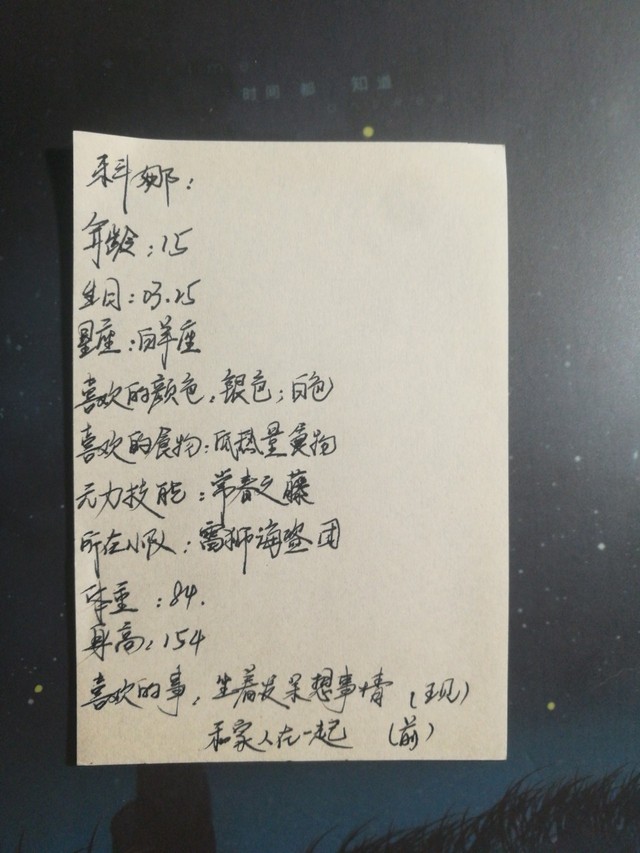 时间都 知道
科娜：
年龄：15
生日：03.25
星座：白羊座
喜欢的颜色：银色；白色
喜欢的食物：低热量食物
元力技能：常春之藤
所在小队：雷狮海盗团
体重：84.
身高：154
喜欢的事：坐着发呆想事情（现）
和家人在一起（前）